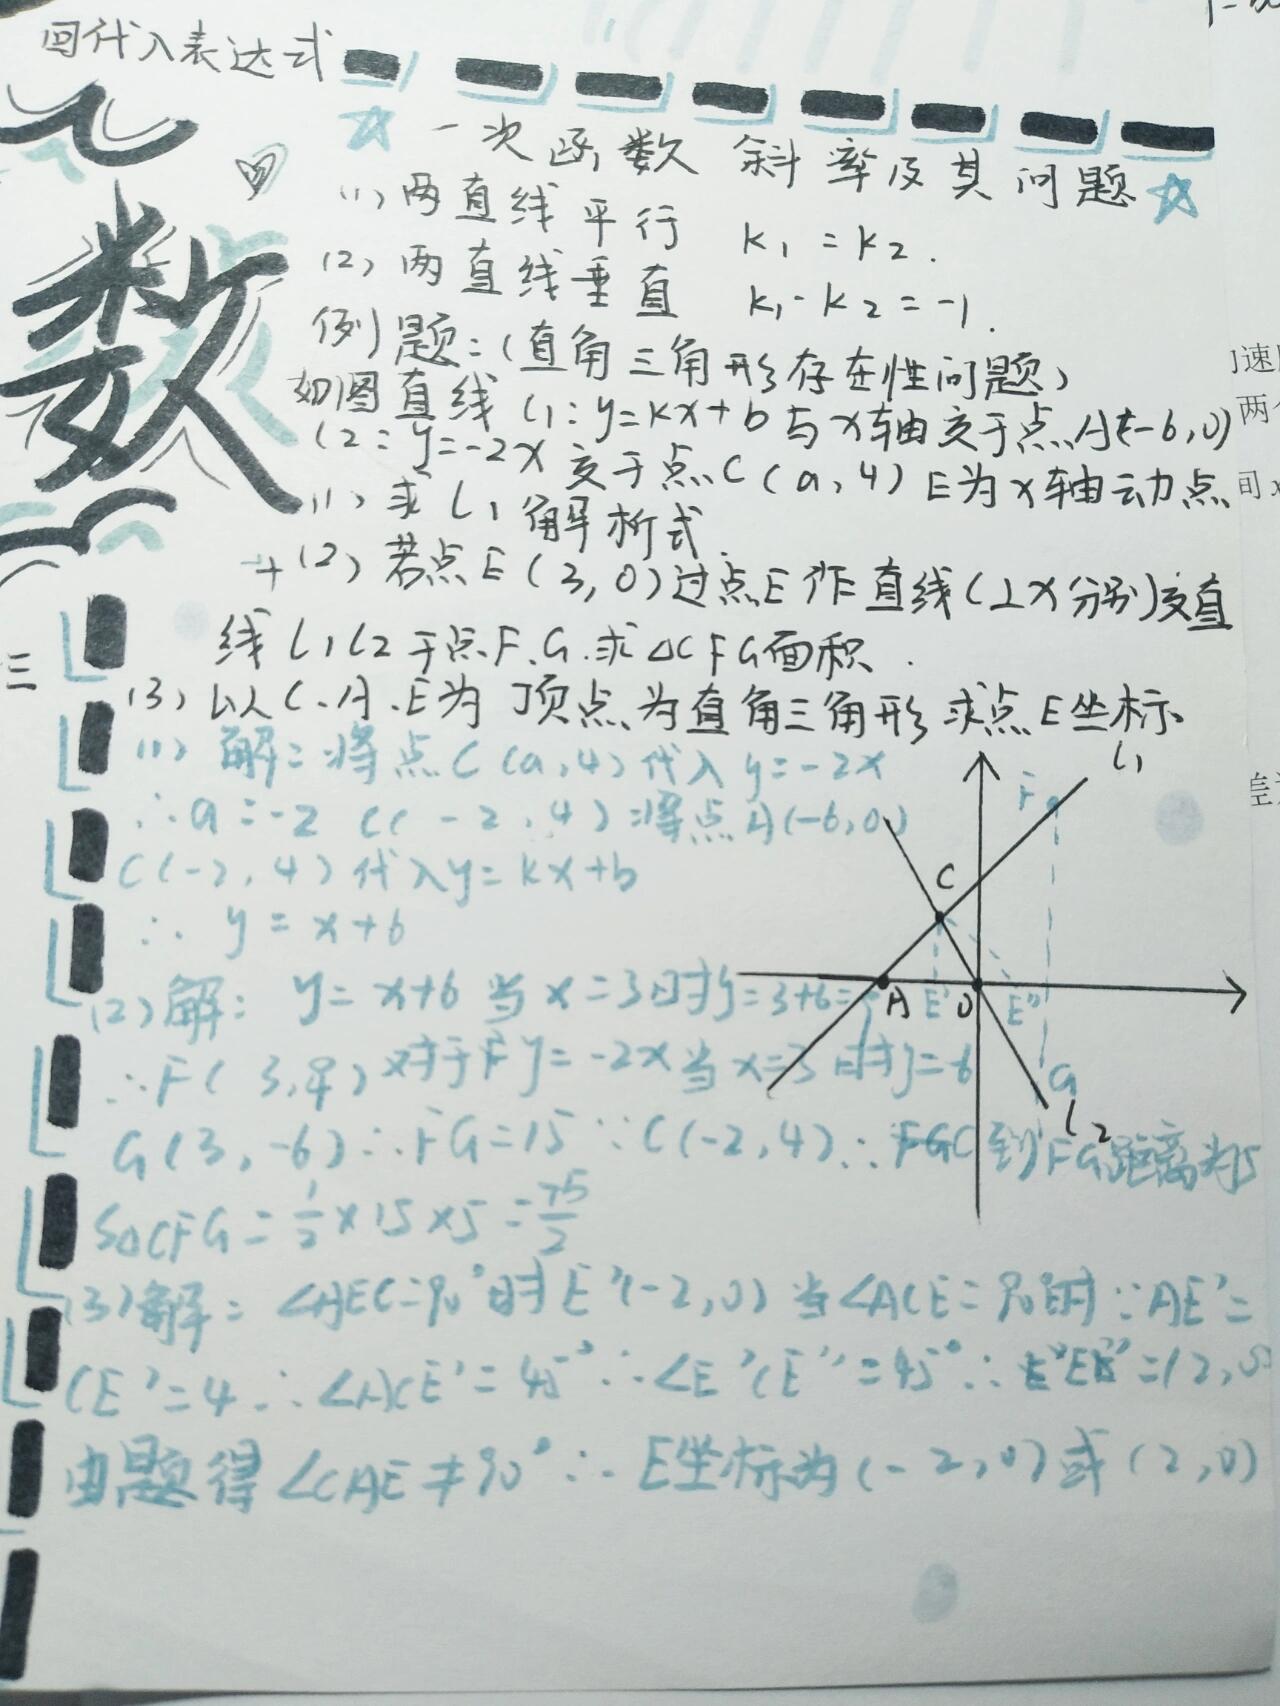 回代入表达式
数
☆ 一次函数 斜率及其问题 ☆
四
(1) 两直线平行 K₁=K₂.
(2) 两直线垂直 K₁·K₂=-1.
例题:(直角三角形存在性问题)
如图直线 l1:y=kx+b与x轴交于点A(-6,0)
l2:y=-2x 交于点C(a,4) E为x轴动点
(1) 求l1解析式.
(2) 若点E(3,0)过点E作直线l⊥x分别交直
线l1l2于点F.G.求△CFG面积.
(3) 以C.A.E为顶点为直角三角形求点E坐标
(1) 解:将点C(a,4)代入y=-2x
∴a=-2 C(-2,4)将点A(-6,0)
C(-2,4)代入y=kx+b
∴ y=x+6
(2)解: y=x+6当x=3时y=3+6=9
∴F(3,9)对于F y=-2x当x=3时y=-6
G(3,-6)∴FG=15∵C(-2,4)∴ C到FG距离为5
S△CFG=1/2×15×5=75/2
(3)解:∠AEC=90°时E'(-2,0)当∠ACE=90°时∵AE'=
CE'=4∴∠ACE'=45°∴∠E'CE''=45°∴ E''=(2,0)
由题得∠CAE≠90°∴E坐标为(-2,0)或(2,0)
l1
F
C
A
E'
O
E''
G
l2
三
速
两
间